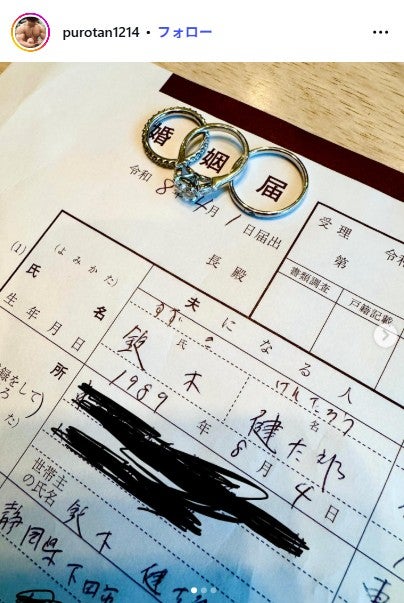 purotan1214 • フォロー
婚姻届
令和8年4月1日届出
長殿
受理 令和
第
書類調査 戸籍記載
(1)
(よみかた)
氏名
生年月日
夫になる人
すずき けんたろう
氏 名
鈴木 健太郎
1989年8月4日
所
録をして
ろ
た)
世帯主
の氏名
鈴木 健太
静岡県下田市